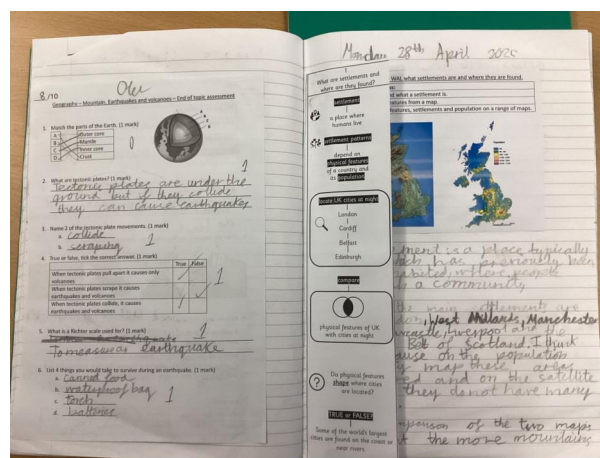 8/10
Geography – Mountain, Earthquakes and volcanoes – End of topic assessment
1. Match the parts of the Earth. (1 mark)
A Outer core
B Mantle
C Inner core
D Crust
0
2. What are tectonic plates? (1 mark)
1
Tectonic plates are under the
ground but if they collide
they can cause earthquakes
3. Name 2 of the tectonic plate movements. (1 mark)
a. collide
b. scraping
1
4. True or false, tick the correct answer. (1 mark)
True False
When tectonic plates pull apart it causes only
volcanoes
When tectonic plates scrape it causes
earthquakes and volcanoes
When tectonic plates collide, it causes
earthquakes and volcanoes
1
5. What is a Richter scale used for? (1 mark)
1
To measure earthquake
6. List 4 things you would take to survive during an earthquake. (1 mark)
a. canned food
b. waterproof bag
c. torch
d. batteries
1
Monday 28th April 2025
What are settlements and
where are they found?
settlement
a place where
humans live
settlement patterns
depend on
physical features
of a country and
its population
locate UK cities at night
London
Cardiff
Belfast
Edinburgh
compare
physical features of UK
with cities at night
Do physical features
shape where cities
are located?
TRUE or FALSE?
Some of the world's largest
cities are found on the coast or
near rivers.
WAL what settlements are and where they are found.
nd what a settlement is.
eatures from a map.
eatures, settlements and population on a range of maps.
ment is a place typically
hich has previously been
abited, where people
a community
the main settlements are
West Midlands, Manchester
Liverpool and the
of Scotland. I think
ause on the population
map these areas
ed and on the satellite
they do not have many
mparison of the two maps
the more mountains